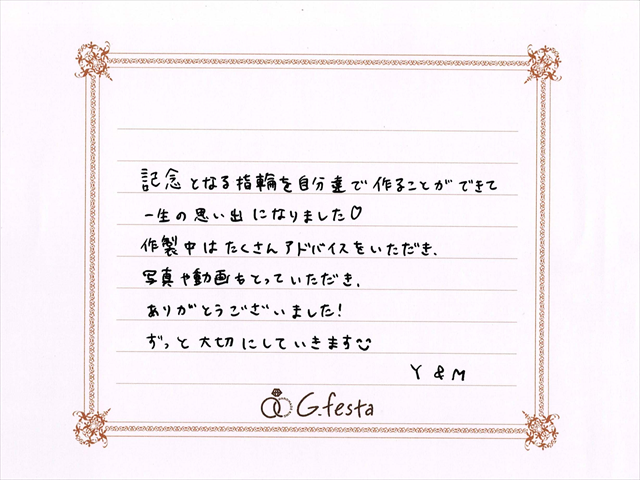 記念となる指輪を自分達で作ることができて
一生の思い出になりました♡
作製中はたくさんアドバイスをいただき、
写真や動画もとっていただき、
ありがとうございました!
ずっと大切にしていきます☺
Y & M
G.festa